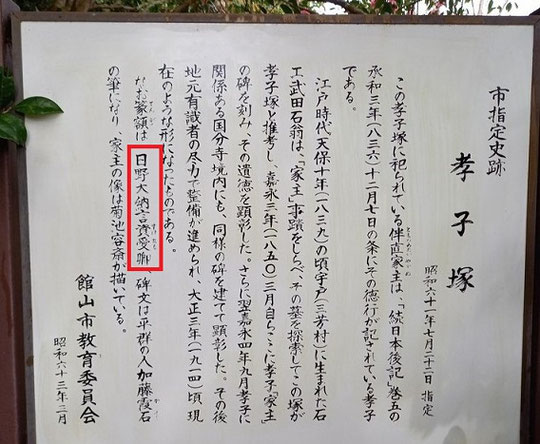 市指定史跡
孝子塚
昭和六十一年七月二十二日 指定
この孝子塚に祀られている伴直家主は、「続日本後記」巻五の
承和三年(八三六)十二月七日の条にその徳行が記されている孝子
である。
江戸時代天保十年(一八三九)の頃宇戸(三芳村)に生まれた石
工武田石翁は、「家主」事蹟をしらべ、その墓を探索してこの塚が
孝子塚と推考し、嘉永三年(一八五〇)三月自らここに孝子「家主」
の碑を刻み、その遺徳を顕彰した。さらに翌嘉永四年九月孝子に
関係ある国分寺境内にも、同様の碑を建てて顕彰した。その後
地元有識者の尽力で整備が進められ、大正三年(一九一四)頃現
在のような形になったものである。
なお篆額は、日野大納言資愛卿、碑文は平群の人加藤霞石
の筆になり、家主の像は菊池容斎が描いている。
昭和六十三年二月
館山市教育委員会